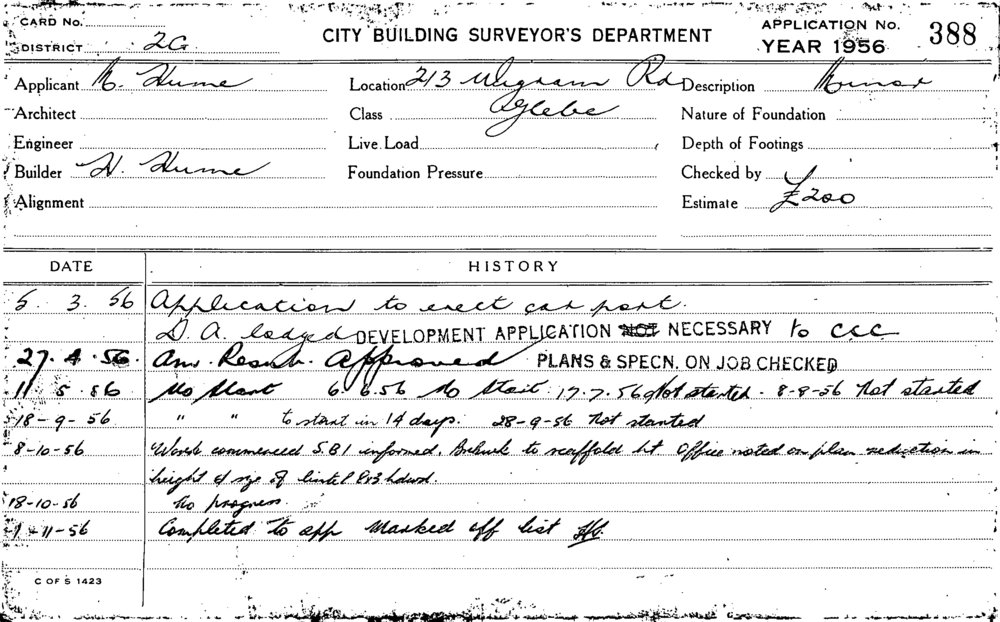 CARD No.
DISTRICT 2G
CITY BUILDING SURVEYOR'S DEPARTMENT
APPLICATION No. 388
YEAR 1956
Applicant N. Hume Location 213 Wigram Rd Description Minor
Architect Class Glebe Nature of Foundation
Engineer Live Load Depth of Footings
Builder N. Hume Foundation Pressure Checked by
Alignment Estimate £200
DATE HISTORY
5 3. 56 Application to erect car port.
D. A. lodged DEVELOPMENT APPLICATION NOT NECESSARY to C.C.C
27. 4. 56. Approved PLANS & SPECN. ON JOB CHECKED
11 5. 56 No Start 6. 6. 56 No Start. 17. 7. 56 Not started. 8-8-56 Not started
18-9-56 " " to start in 14 days. 28-9-56 Not started
8-10-56 Work commenced S.B.I informed. Brickwk to scaffold ht. Office noted on plan reduction in
height & size of lintel 8x3 hdwd.
18-10-56 No progress.
1-11-56 Completed to app Marked off list
C OF S 1423